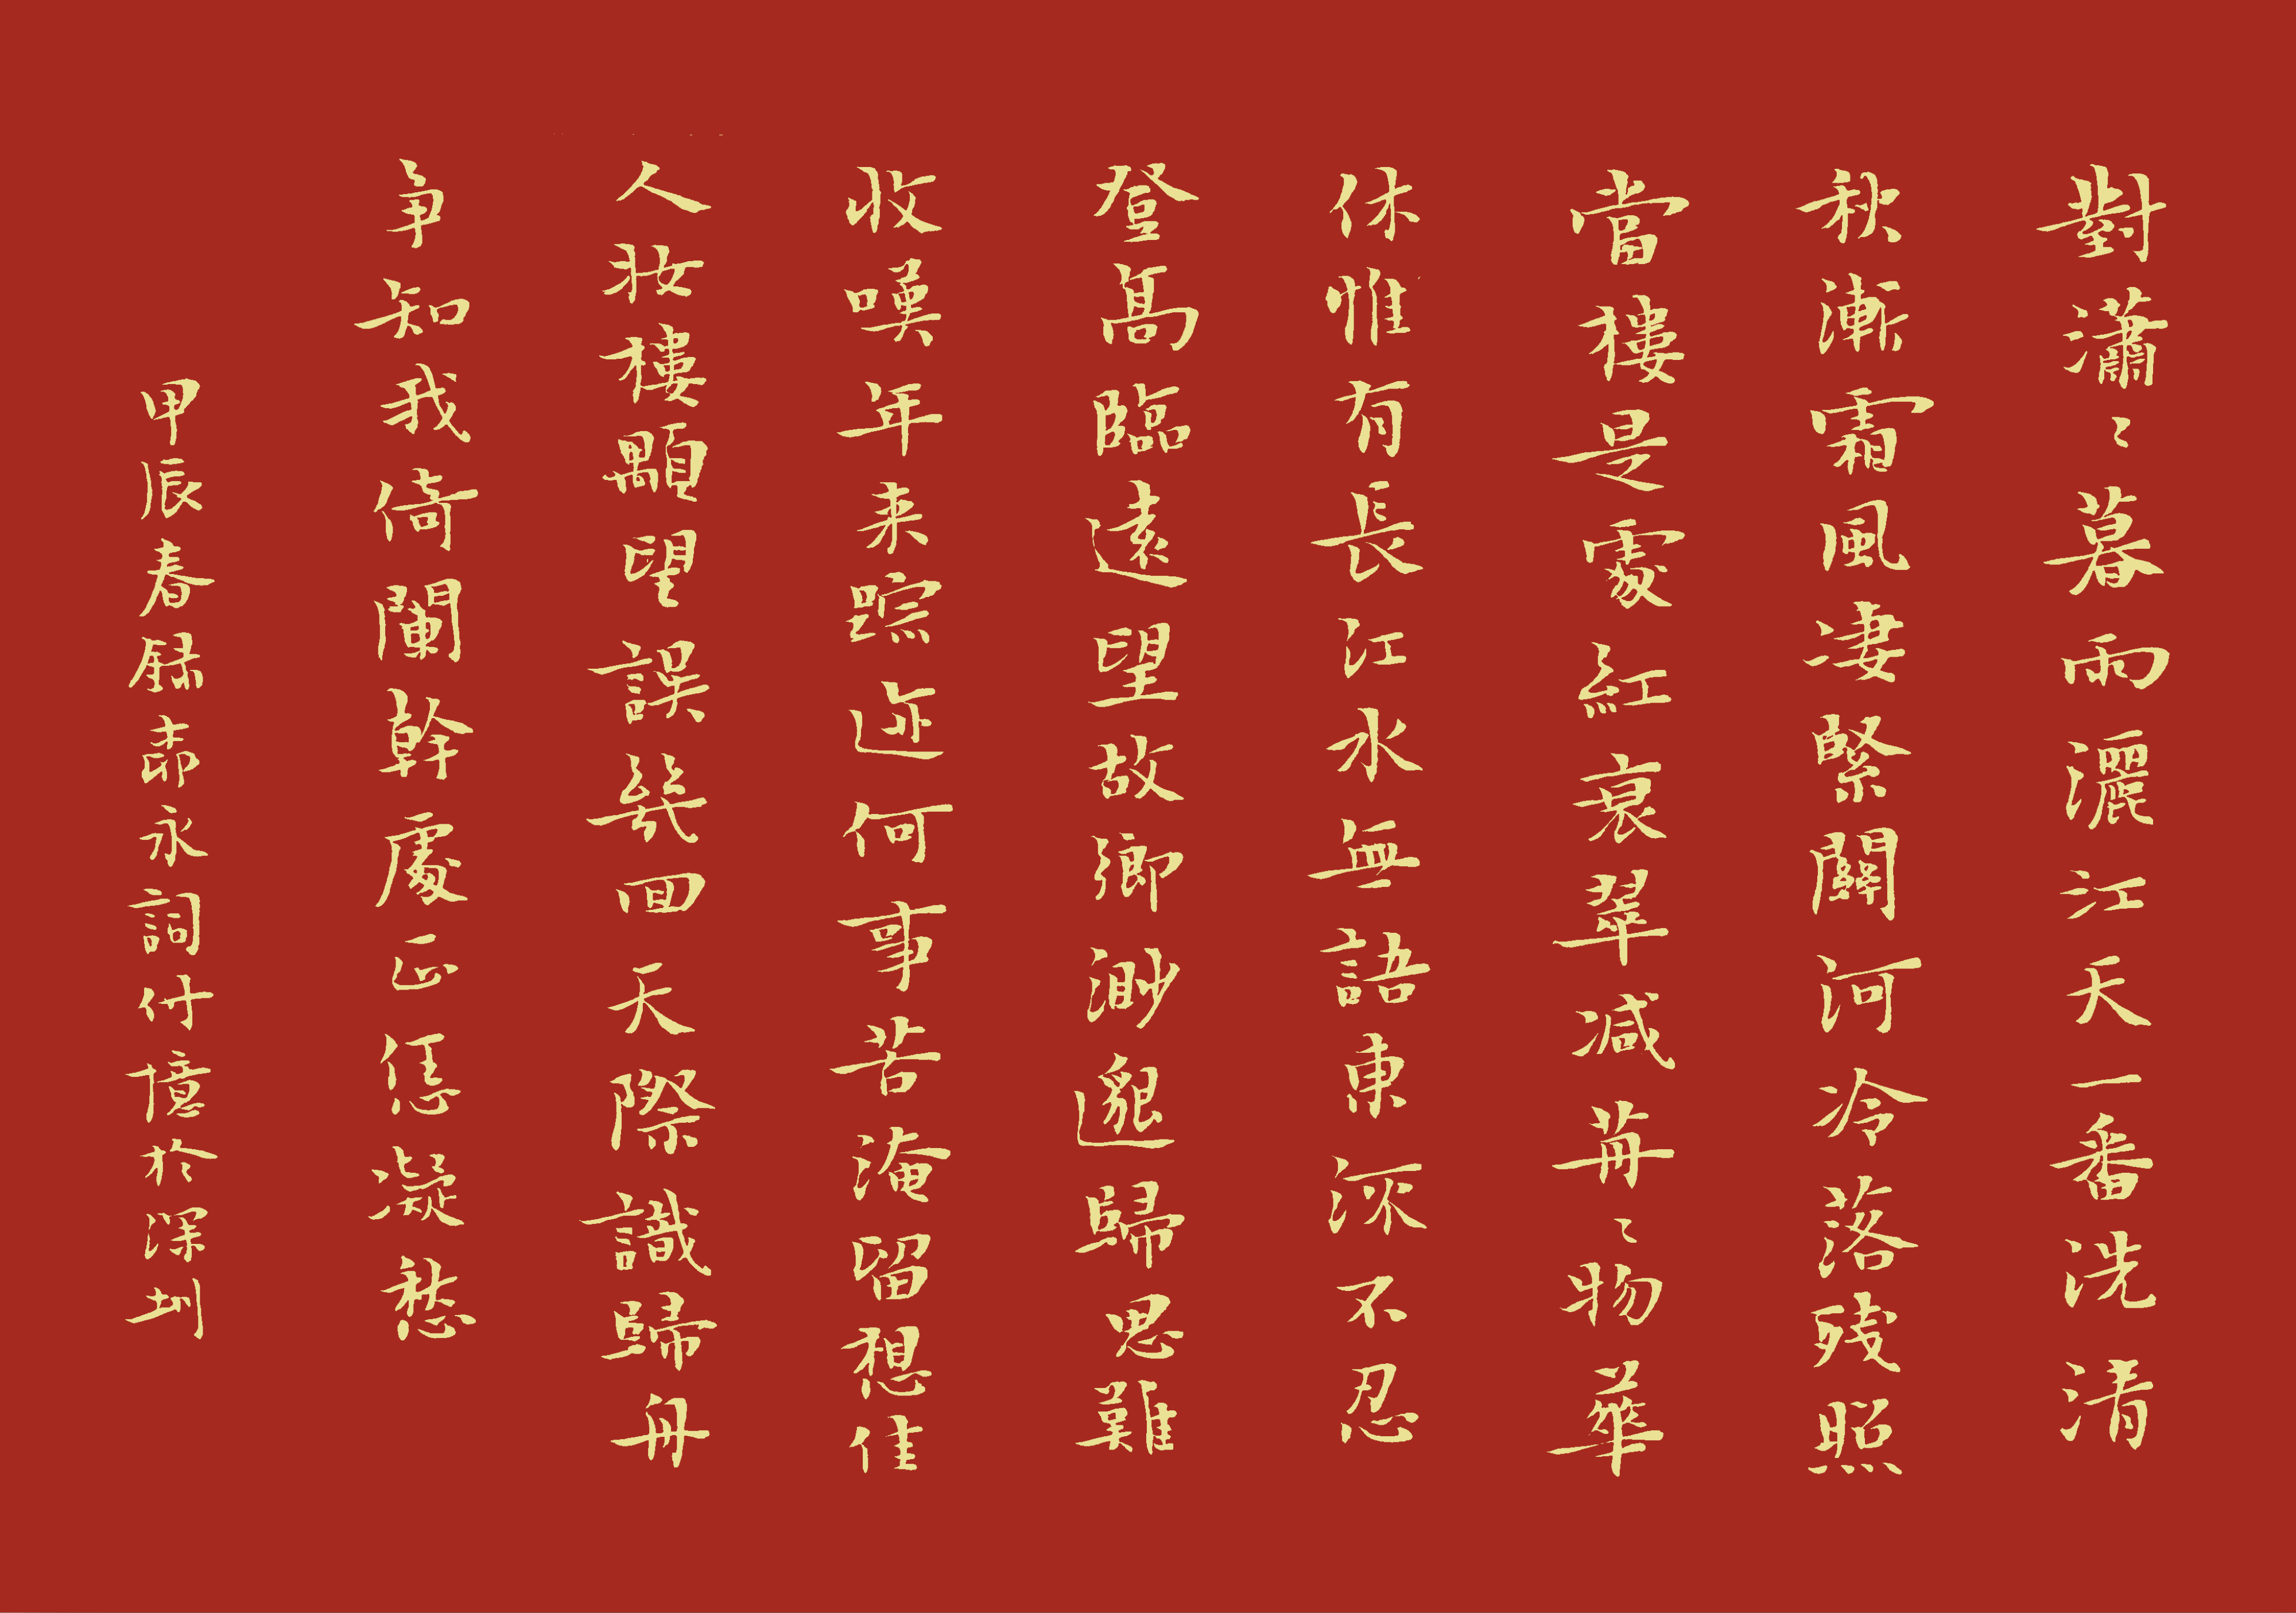 對瀟〻暮雨灑江天一番洗清
秋漸霜風凄緊關河冷落残照
當樓是處紅衰翠減苒〻物華
休惟有長江水無語東流不忍
登高臨遠望故鄉渺邈歸思難
收嘆年来踪迹何事苦淹留想佳
人妝樓顒望誤幾回天際識歸舟
爭知我倚闌幹處正恁凝愁
甲辰春録柳永詞於深圳